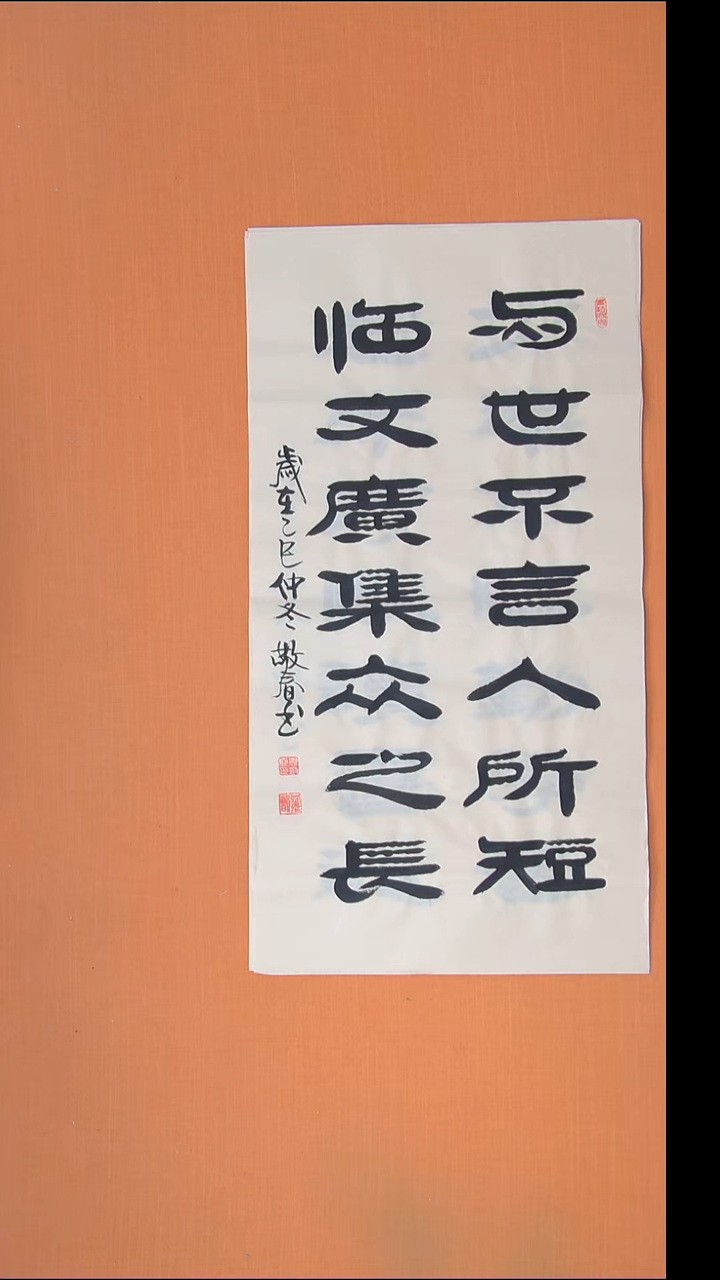 与世不言人所短
临文廣集众之長
歲在乙巳仲冬敬春书